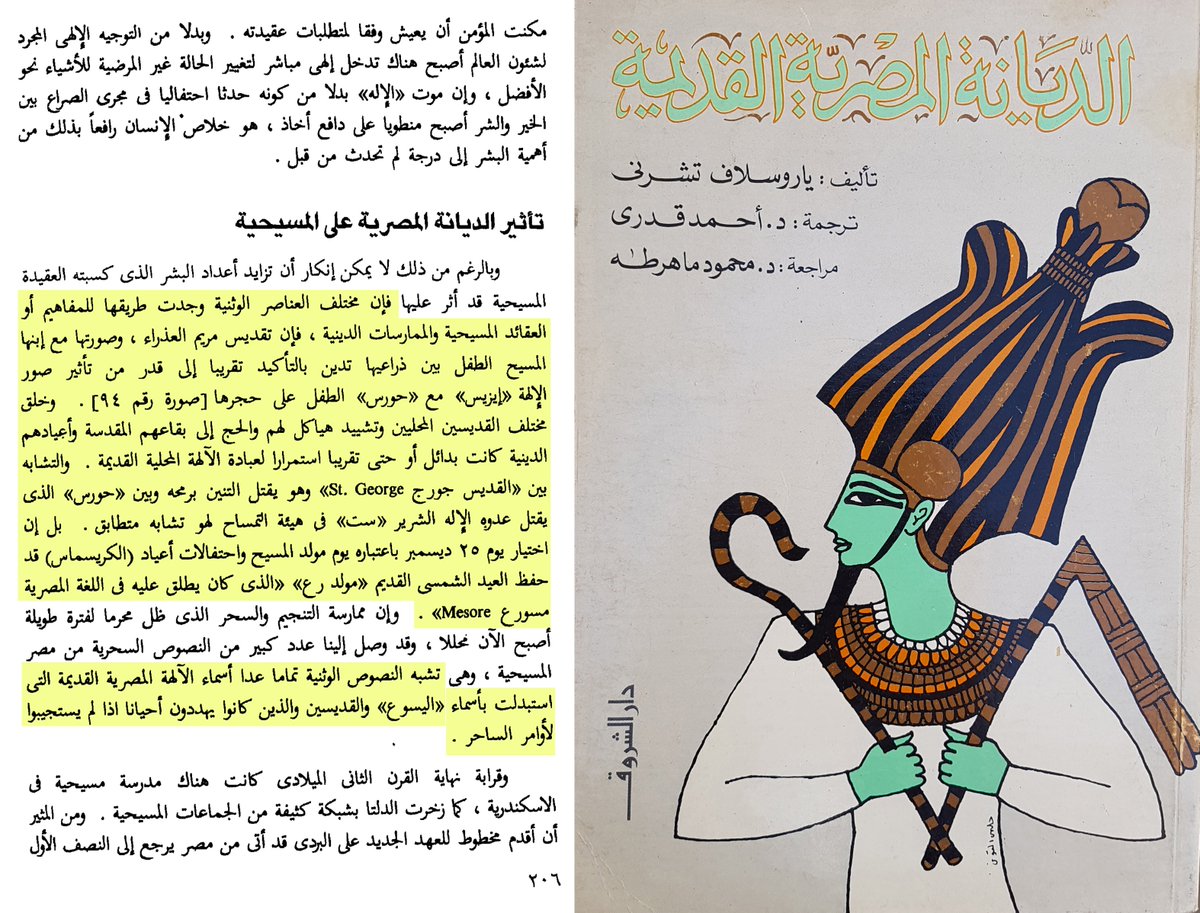 مكنت المؤمن أن يعيش وفقا لمتطلبات عقيدته . وبدلا من التوجيه الإلهى المجرد
لشئون العالم أصبح هناك تدخل إلهى مباشر لتغيير الحالة غير المرضية للأشياء نحو
الأفضل ، وإن موت «الإله» بدلا من كونه حدثا احتفاليا فى مجرى الصراع بين
الخير والشر أصبح منطويا على دافع أخاذ ، هو خلاص الإنسان رافعاً بذلك من
أهمية البشر إلى درجة لم تحدث من قبل .
تأثير الديانة المصرية على المسيحية
وبالرغم من ذلك لا يمكن إنكار أن تزايد أعداد البشر الذى كسبته العقيدة
المسيحية قد أثر عليها فإن مختلف العناصر الوثنية وجدت طريقها للمفاهيم أو
العقائد المسيحية والممارسات الدينية ، فإن تقديس مريم العذراء ، وصورتها مع إبنها
المسيح الطفل بين ذراعيها تدين بالتأكيد تقريبا إلى قدر من تأثير صور
الإلهة «إيزيس» مع «حورس» الطفل على حجرها [صورة رقم ٩٤] . وخلق
مختلف القديسين المحليين وتشييد هياكل لهم والحج إلى بقاعهم المقدسة وأعيادهم
الدينية كانت بدائل أو حتى تقريبا استمرارا لعبادة الآلهة المحلية القديمة . والتشابه
بين «القديس جورج St. George» وهو يقتل التنين برمحه وبين «حورس» الذى
يقتل عدوه الإله الشرير «ست» فى هيئة التمساح لهو تشابه متطابق . بل إن
اختيار يوم ٢٥ ديسمبر باعتباره يوم مولد المسيح واحتفالات أعياد (الكريسماس) قد
حفظ العيد الشمسى القديم «مولد رع» «الذى كان يطلق عليه فى اللغة المصرية
مسورع Mesore» . وإن ممارسة التنجيم والسحر الذى ظل محرما لفترة طويلة
أصبح الآن محللا ، وقد وصل إلينا عدد كبير من النصوص السحرية من مصر
المسيحية ، وهى تشبه النصوص الوثنية تماما عدا أسماء الآلهة المصرية القديمة التى
استبدلت بأسماء «اليسوع» والقديسين والذين كانوا يهددون أحيانا اذا لم يستجيبوا
لأوامر الساحر .
وقرابة نهاية القرن الثانى الميلادى كانت هناك مدرسة مسيحية فى
الاسكندرية ، كما زخرت الدلتا بشبكة كثيفة من الجماعات المسيحية . ومن المثير
أن أقدم مخطوط للعهد الجديد على البردى قد أتى من مصر يرجع إلى النصف الأول
٢٠٦
الديانة المصرية القديمة
تأليف : ياروسلاف تشرنى
ترجمة : د. أحمد قدرى
مراجعة : د. محمود ماهر طه
دار الشروق